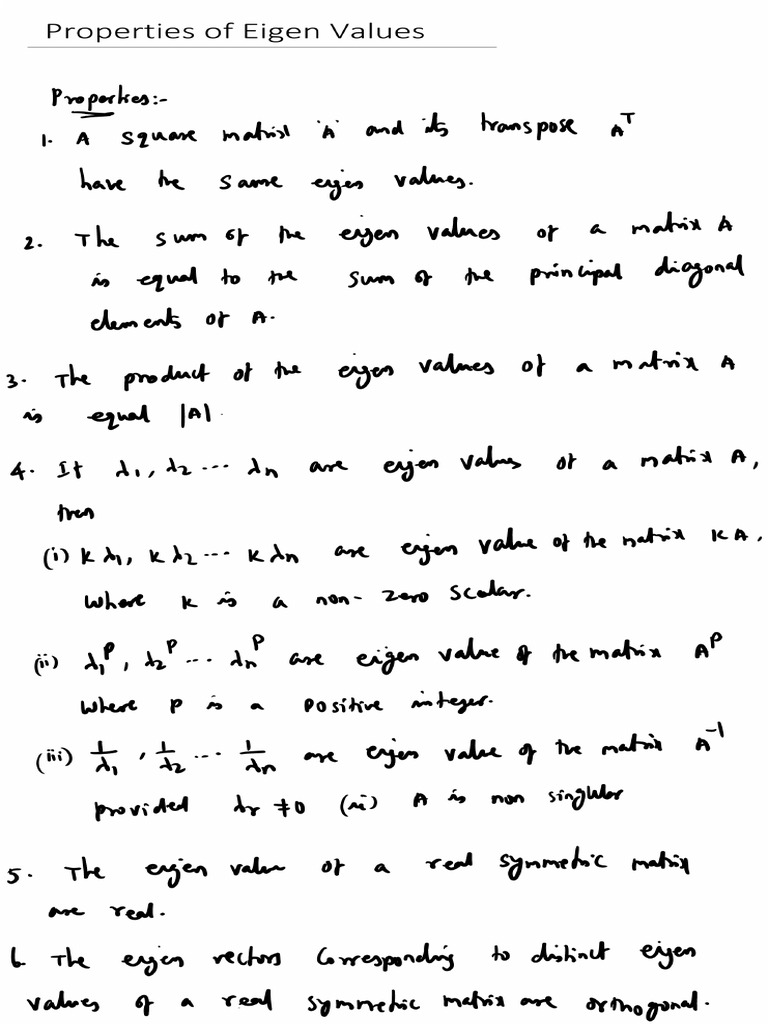 Properties of Eigen Values
Properties:-
1. A square matrix 'A' and its transpose Aᵀ
have the same eigen values.
2. The sum of the eigen values of a matrix A
is equal to the sum of the principal diagonal
elements of A.
3. The product of the eigen values of a matrix A
is equal |A|.
4. If λ₁, λ₂ ... λₙ are eigen values of a matrix A,
then
(i) K λ₁, K λ₂ ... K λₙ are eigen value of the matrix KA,
where K is a non-zero scalar.
(ii) λ₁ᴾ, λ₂ᴾ ... λₙᴾ are eigen value of the matrix Aᴾ
where P is a positive integer.
(iii) 1/λ₁, 1/λ₂ ... 1/λₙ are eigen value of the matrix A⁻¹
provided λᵣ ≠ 0 (ie) A is non singular
5. The eigen value of a real symmetric matrix
are real.
6. The eigen vectors corresponding to distinct eigen
values of a real symmetric matrix are orthogonal.